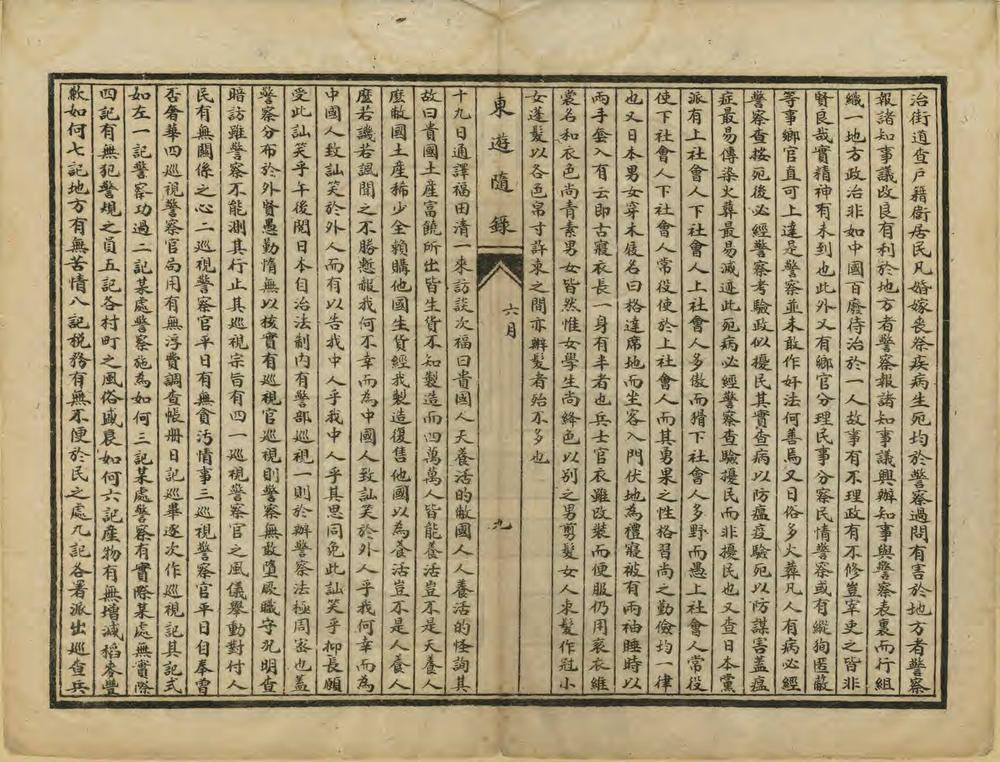 治街道查戶籍衛居民凡婚嫁喪祭疾病生死均於警察過問有害於地方者警察
報諸知事議改良有利於地方者警察報諸知事議興辦知事與警察表裏而行組
織一地方政治非如中國百廢待治於一人故事有不理政有不修豈宰吏之皆非
賢良哉實精神有未到也此外又有鄉官分理民事分察民情警察或有縱狥匿蔽
等事鄉官直可上達是警察並未敢作奸法何善焉又日俗多火葬凡人有病必經
警察查按死後必經警察考驗政似擾民其實查病以防瘟疫驗死以防謀害蓋瘟
症最易傳染火葬最易滅迹此死病必經警察查驗擾民而非擾民也又查日本黨
派有上社會人下社會人上社會人多傲而猾下社會人多野而愚上社會人常役
使下社會人下社會人常役使於上社會人而其勇果之性格習尚之勤儉均一律
也又日本男女穿木屐名曰格達席地而坐客入門伏地為禮寢被有兩袖睡時以
兩手套入有云即古寢衣長一身有半者也兵士官衣雖改裝而便服仍用衮衣維
裳名和衣色尚青素男女皆然惟女學生尚絳色以別之男剪髮女人束髮作冠小
女蓬髮以各色帛寸許束之間亦辮髮者殆不多也
東遊隨錄
六月
九
十九日通譯福田清一來訪談次福曰貴國人天養活的敝國人人養活的怪詢其
故曰貴國土產富饒所出皆生貨不知製造而四萬萬人皆能養活豈不是天養人
麼敝國土產稀少全賴購他國生貨經我製造復售他國以為養活豈不是人養人
麼若譏若諷聞之不勝慙赧我何不幸而為中國人致訕笑於外人乎我何幸而為
中國人致訕笑於外人而有以告我中人乎我中人乎其思同免此訕笑乎抑長願
受此訕笑乎午後閱日本自治法制內有警部巡視一則於辦警察法極周密也蓋
警察分布於外賢愚勤惰無以核實有巡視官巡視則警察無敢墮厥職守況明查
暗訪雖警察不能測其行止其巡視宗旨有四一巡視警察官之風儀舉動對付人
民有無關係之心二巡視警察官平日有無貪汚情事三巡視警察官平日自奉奢
否奢華四巡視警察官局用有無浮費調查帳册日記巡畢逐次作巡視記其記式
如左一記警察功過二記某處警察施為如何三記某處警察有實際某處無實際
四記有無犯警規之員五記各村町之風俗盛衰如何六記產物有無增減稻麥豐
歉如何七記地方有無苦情八記稅務有無不便於民之處九記各署派出巡查兵